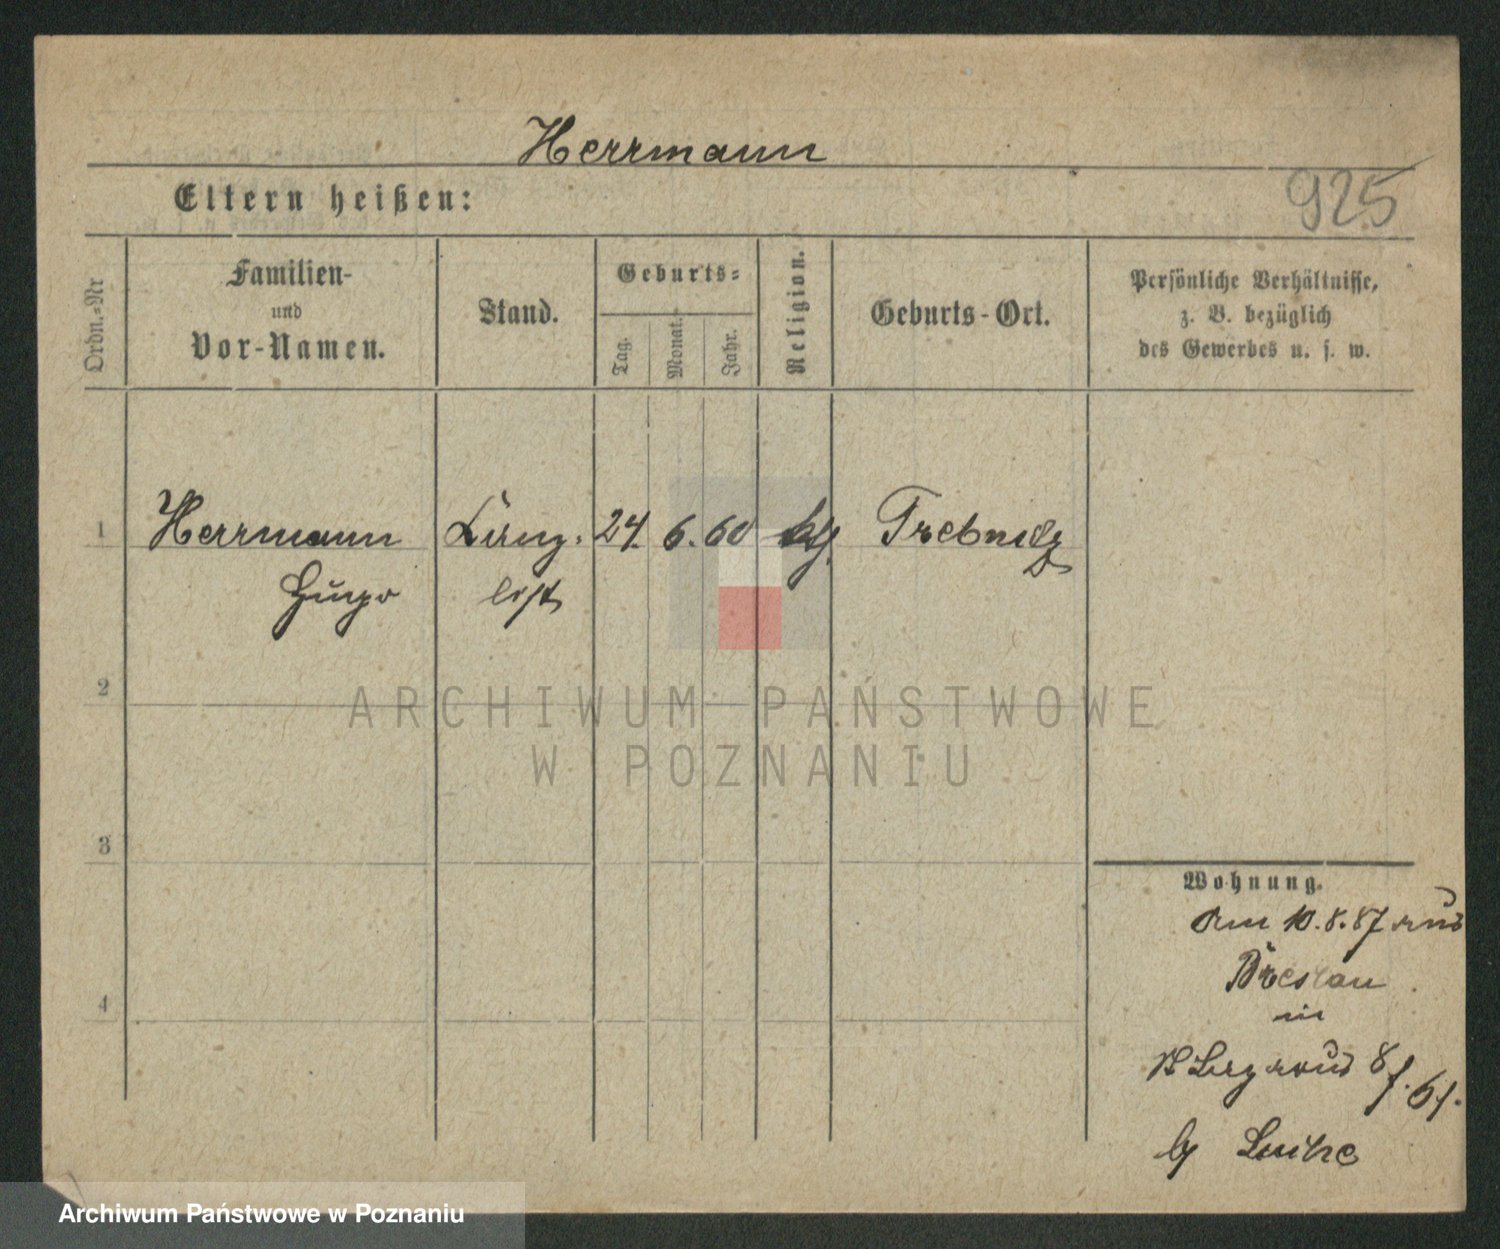 Herrmann
Eltern heißen:
925
Ordn.-Nr
Familien-
und
Vor-Namen.
Stand.
Geburts-
Tag.
Monat.
Jahr.
Religion.
Geburts-Ort.
Persönliche Verhältnisse,
z. B. bezüglich
des Gewerbes u. s. w.
1 Herrmann 24. 6. 60 Trebnitz
Hugo list
2
3
4
Wohnung.
Am 10.8.87 aus
Breslau
in
8
bei
ARCHIWUM PAŃSTWOWE
W POZNANIU
Archiwum Państwowe w Poznaniu